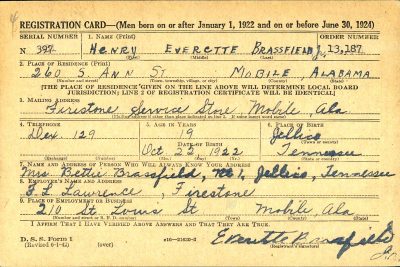 REGISTRATION CARD—(Men born on or after January 1, 1922 and on or before June 30, 1924)
SERIAL NUMBER 1. NAME (Print) ORDER NUMBER
N 397 HENRY EVERETTE BRASSFIELD Jr 13,187
2. PLACE OF RESIDENCE (Print)
260 S ANN ST. MOBILE, ALABAMA
(Number and street) (Town, township, village, or city) (County) (State)
[THE PLACE OF RESIDENCE GIVEN ON THE LINE ABOVE WILL DETERMINE LOCAL BOARD
JURISDICTION; LINE 2 OF REGISTRATION CERTIFICATE WILL BE IDENTICAL]
3. MAILING ADDRESS
Firestone Service Store Mobile, Ala
4. TELEPHONE 5. AGE IN YEARS 6. PLACE OF BIRTH
Dex. 129 19 Jellico
DATE OF BIRTH
Oct 22, 1922 Tennessee
(Exchange) (Number) (Mo.) (Day) (Yr.) (State or country)
7. NAME AND ADDRESS OF PERSON WHO WILL ALWAYS KNOW YOUR ADDRESS
Mrs Bettie Brassfield, Jellico, Tennessee
8. EMPLOYER'S NAME AND ADDRESS
Lawrence, Firestone
9. PLACE OF EMPLOYMENT OR BUSINESS
210 St Louis St Mobile, Ala
(Number and street or R. F. D. number) (Town) (County) (State)
I AFFIRM THAT I HAVE VERIFIED ABOVE ANSWERS AND THAT THEY ARE TRUE.
D. S. S. Form 1
(Revised 6-9-42) (over) Everette Brassfield Jr.
(Registrant's signature)